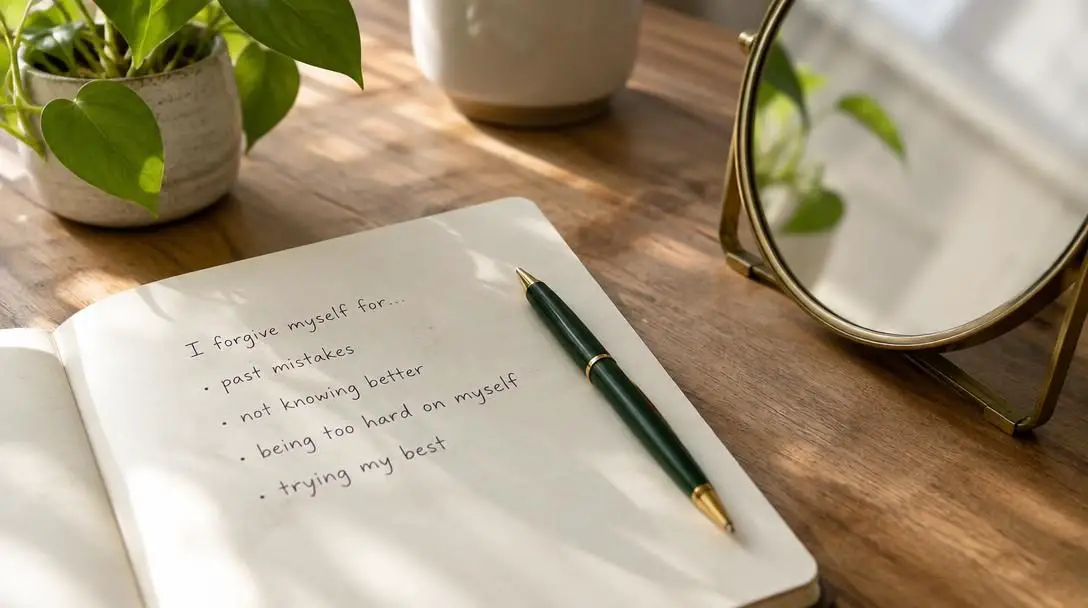 I forgive myself for...
• past mistakes
• not knowing better
• being too hard on myself
• trying my best